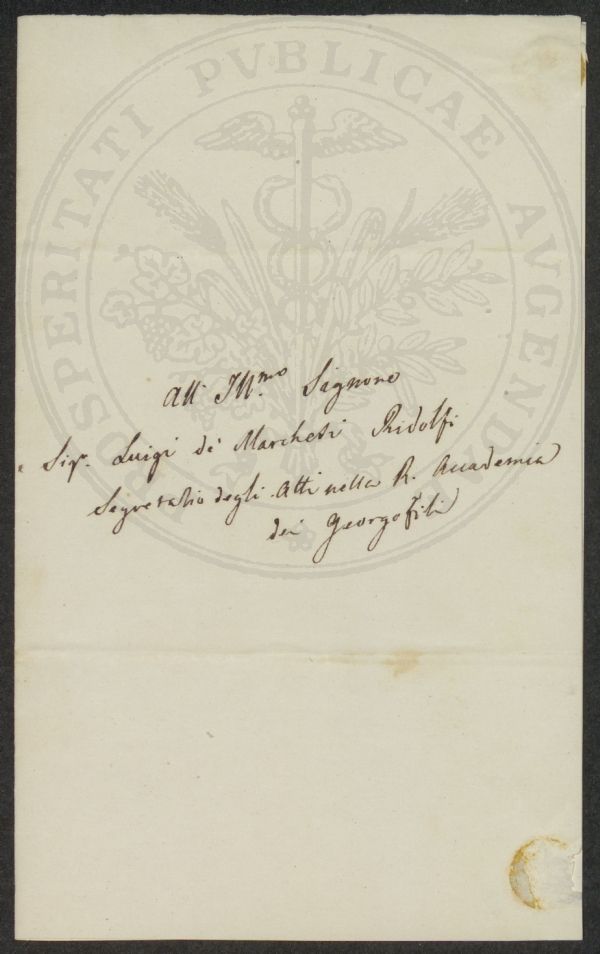 PROSPERITATI PVBLICAE AVGENDAE
All' Ill.mo Signore
Sigr. Luigi de' Marchesi Ridolfi
Segretario degli Atti nella R. Accademia
dei Georgofili